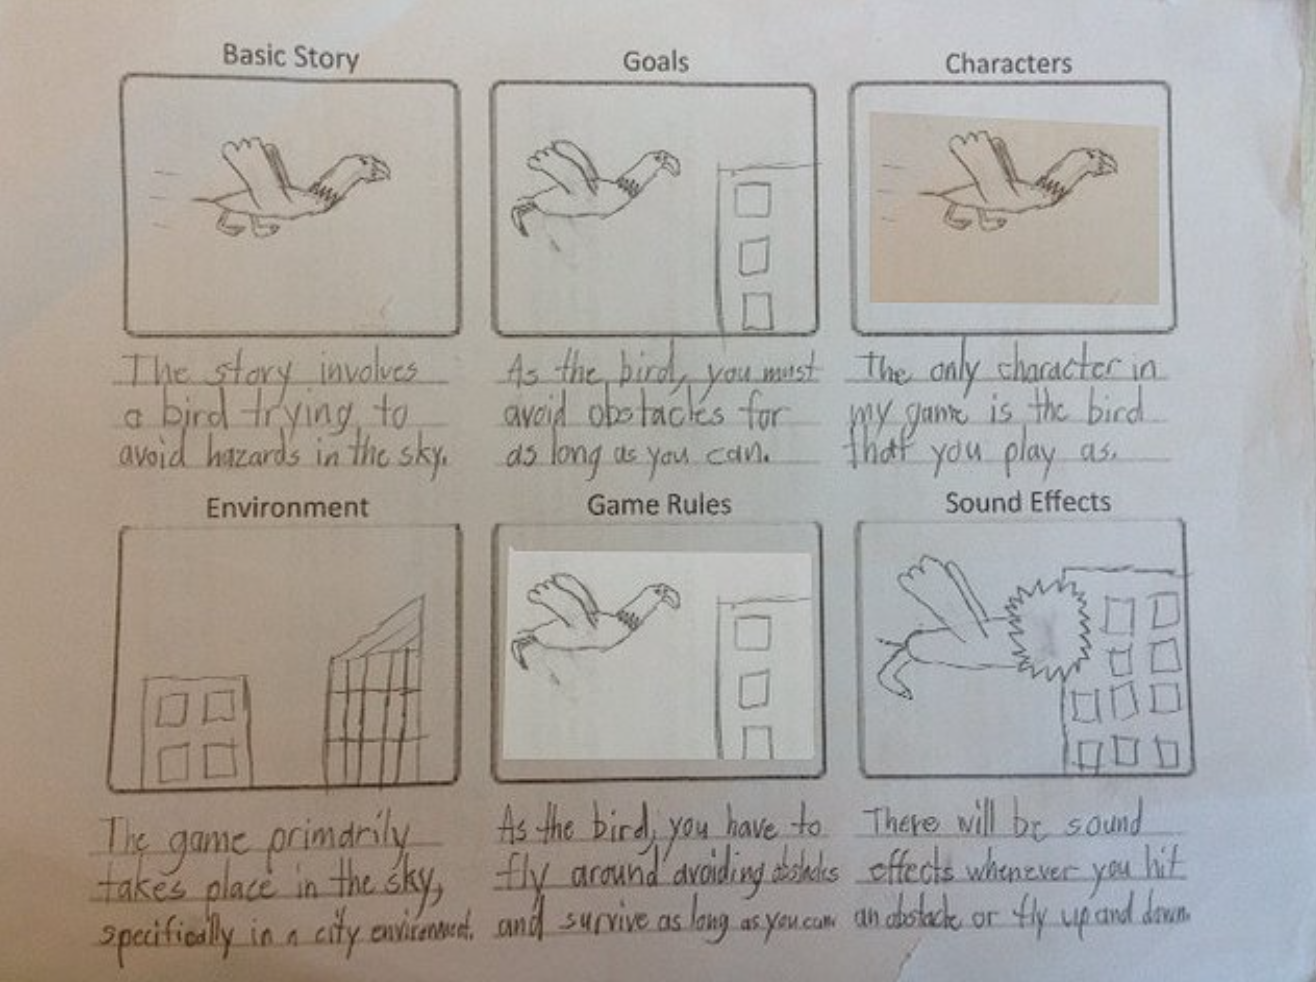 Basic Story
The story involves
a bird trying to
avoid hazards in the sky.
Goals
As the bird, you must
avoid obstacles for
as long as you can.
Characters
The only character in
my game is the bird
that you play as.
Environment
The game primarily
takes place in the sky,
specifically in a city environment.
Game Rules
As the bird, you have to
fly around avoiding obstacles
and survive as long as you can
Sound Effects
There will be sound
effects whenever you hit
an obstacle or fly up and down.